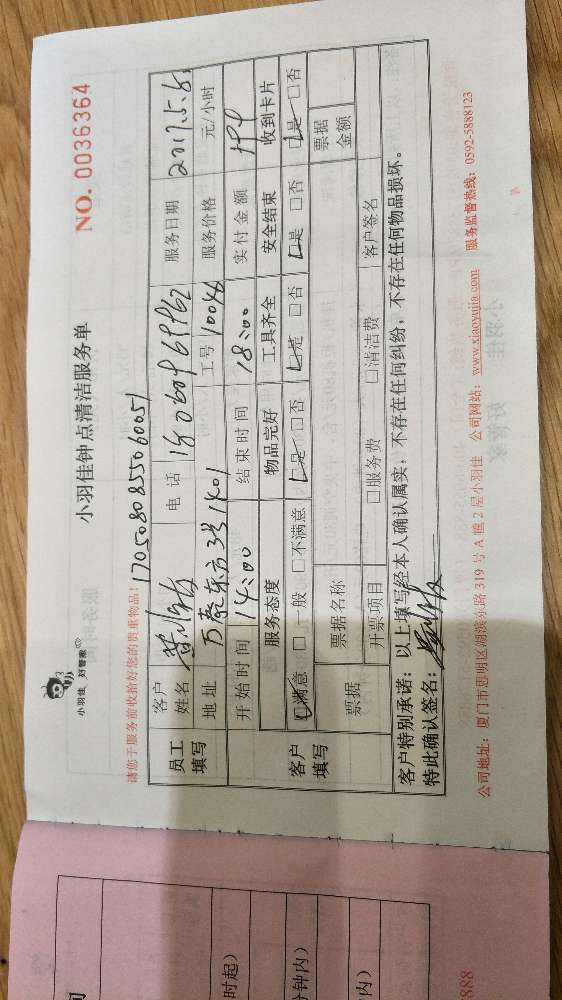 小羽佳 好智家
小羽佳钟点清洁服务单
NO. 0036364
请您于服务前收拾好您的贵重物品!
170508085506005
员工填写 客户姓名 电话 服务日期 2017.5.8
地址 万泰东方3号1401 工号 10046 服务价格 元/小时
开始时间 14:00 结束时间 18:00 实付金额
客户填写 服务态度 物品完好 工具齐全 安全结束 收到卡片
☑满意 □一般 □不满意 ☑是 □否 ☑是 □否 ☑是 □否 ☑是 □否
票据 票据名称 票据金额
开票项目 □服务费 □清洁费 客户签名
客户特别承诺:以上填写经本人确认属实,不存在任何纠纷,不存在任何物品损坏。
特此确认签名:
公司地址:厦门市思明区湖滨东路 319 号 A 幢 2 层小羽佳 公司网站:www.xiaoyujia.com 服务监督热线:0592-5888123
时起)
分钟内)
内)
888